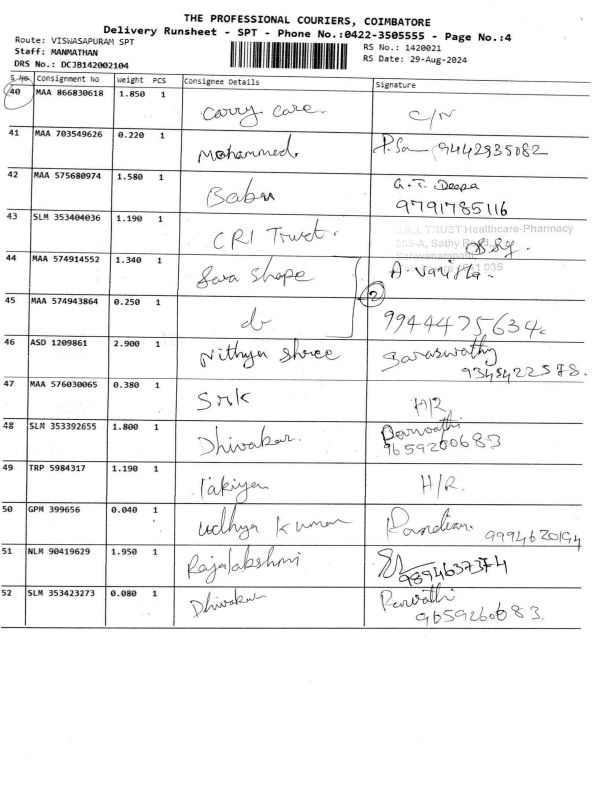 THE PROFESSIONAL COURIERS, COIMBATORE
Delivery Runsheet - SPT - Phone No.:0422-3505555 - Page No.:4
Route: VISWASAPURAM SPT
RS No.: 1420021
Staff: MANMATHAN
RS Date: 29-Aug-2024
DRS No.: DCJB142002104
S.No. Consignment No Weight PCS Consignee Details Signature
40 MAA 866830618 1.850 1 Carry Care. C/N
41 MAA 703549626 0.220 1 Mohammed. 9442935082
42 MAA 575680974 1.580 1 Babu G.T. Deepa
9791785116
43 SLM 353404036 1.190 1 CRI Trust.
C.R.I. TRUST Healthcare-Pharmacy
202-A, Sathy Road,
Saravanampatti
035
44 MAA 574914552 1.340 1 Sara Shape A.
2
45 MAA 574943864 0.250 1 do 9944475634
46 ASD 1209861 2.900 1 Nithya Shree Saraswathy
9345422578.
47 MAA 576030065 0.380 1 H/R
48 SLM 353392655 1.800 1 Dhivakar. Parvathi
9659260683
49 TRP 5984317 1.190 1 Takiya H/R.
50 GPM 399656 0.040 1 Udhya Kumar Pandian
51 NLM 90419629 1.950 1 Rajalakshmi
9894637374
52 SLM 353423273 0.080 1 Dhivakar Parvathi
9659260683.